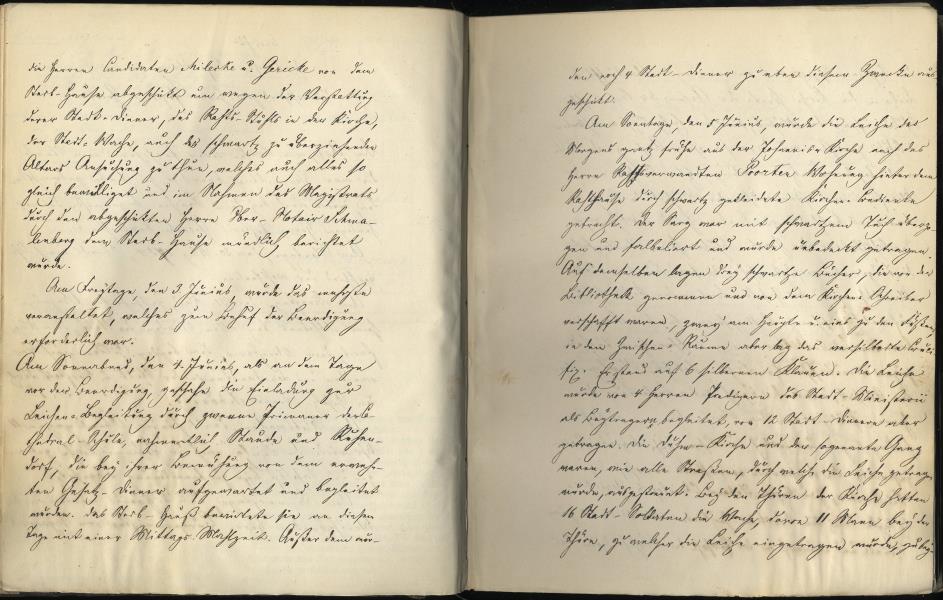 die Herren Candidaten Milerke u. Gericke von dem
Sterb-Hause abgeschikt um wegen der Verstattung
derer Stadt-Diener, des Rahts-Stuhls in der Kirche,
der Stadt-Wache, auch des schwartz zu überziehenden
Altars Ansuchung zu thun, welches auch alles so
gleich bewilliget und im Nahmen des Magistrats
durch den abgeschikten Herrn Ober-Notair Schma-
lenberg dem Sterb-Hause mündlich berichtet
wurde.
Am Freytage, den 3 Junius, wurde das mehrste
veranstaltet, welches zum Behuf der Beerdigung
erforderlich war.
Am Sonnabend, den 4. Junius, als an dem Tage
vor der Beerdigung, geschahe die Einladung zur
Leichen-Begleitung durch zweene Primaner der
thedral-Schule, nahmentlich Staude und Kuhen-
dorf, die bey ihrer Bemühung von dem erwehn-
ten Gesetz-Diener aufgewartet und begleitet
wurden. Das Sterb-Hauß bewirtete sie an diesem
Tage mit einer Mittags-Mahlzeit. Außer dem wur-
den noch 4 Stadt-Diener zu eben diesem Zwecke aus
geschikt.
Am Sonntage, den 5 Junius, wurde die Leiche des
Morgens gantz frühe aus der Johannis-Kirche nach des
Herrn Rahtsverwandten Poorten Wohnung hinter dem
Rahthause durch schwartz gekleidete Kirchen-Bediente
gebracht. Der Sarg war mit schwartzem Tuch überzo-
gen und falbelirt und wurde unbedeckt getragen.
Auf demselben lagen drey schwartze Bücher, die von der
Bibliothek genommen und von dem Kirchen-Schreiber
verschafft waren, zwey am Haupte u. eins zu den Füßen,
in dem Zwischen-Raume aber lag das versilberte Cruci-
fix. Er stand auf 6 silbernen Klauen. Die Leiche
wurde von 4 Herren Predigern des Stadt-Ministerii
als Beytragern begleitet, von 12 Stadt-Dienern aber
getragen. Die Duhm-Kirche und der sogenante Gang
waren, wie alle Straßen, durch welche die Leiche getragen
wurde, ausgestreuet. Bey den Thüren der Kirche hatten
16 Stadt-Soldaten die Wache, davon 11 Mann bey der
Thüre, zu welcher die Leiche eingetragen wurde,